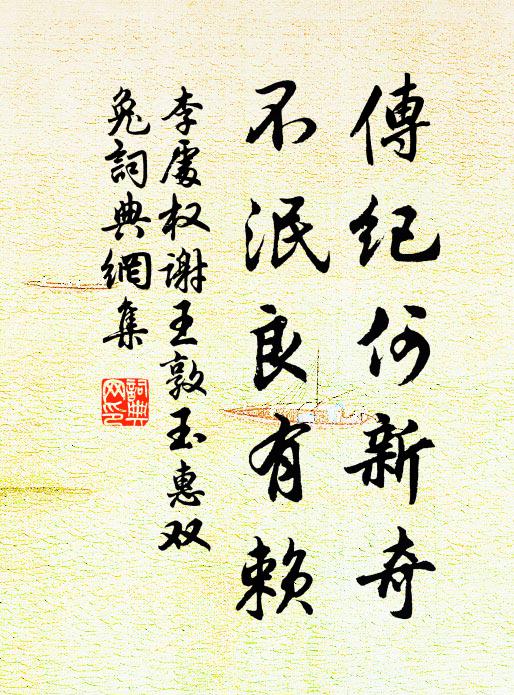 傳紀何新奇
不泯良有賴
李處权謝王敦玉惠双
兔詞典網集
詞典网印